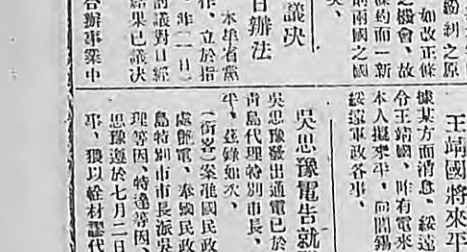 王靖國將來平
據某方面消息、綏遠
令王靖國、昨有電來
本人擬來平、向閻錫
綏遠軍政各事、
吳思豫電告就
吳思豫發出通電已於
青島代理特別市長、
平、茲錄如次、
(銜畧)案准國民政
處艷電、奉國民政
島特別市市長派吳
理等因、特達等因、
思豫遵於七月二日
事、猥以輇材謬代
糾紛之原
之機會、故
如改正條
條約而一新
兩國之國
議决
日辦法
本年省黨
作、立於指
昨二日
討議對日經
結果已議决
各辦事業中